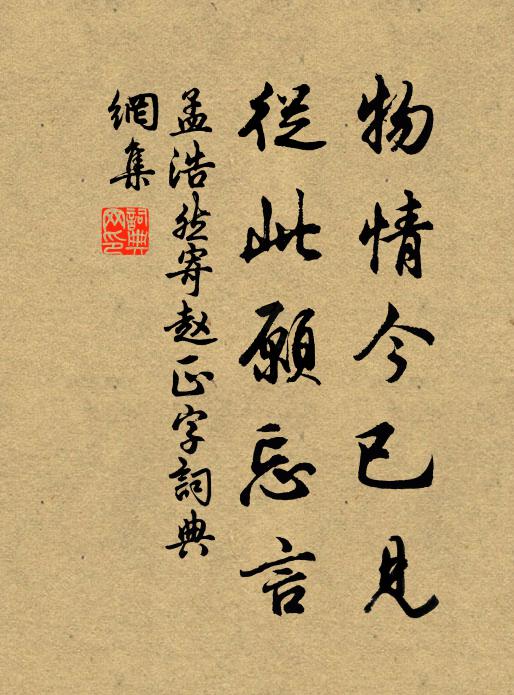 物情今已見
從此願忘言
孟浩然寄赵正字詞典
網集
詞典
网印